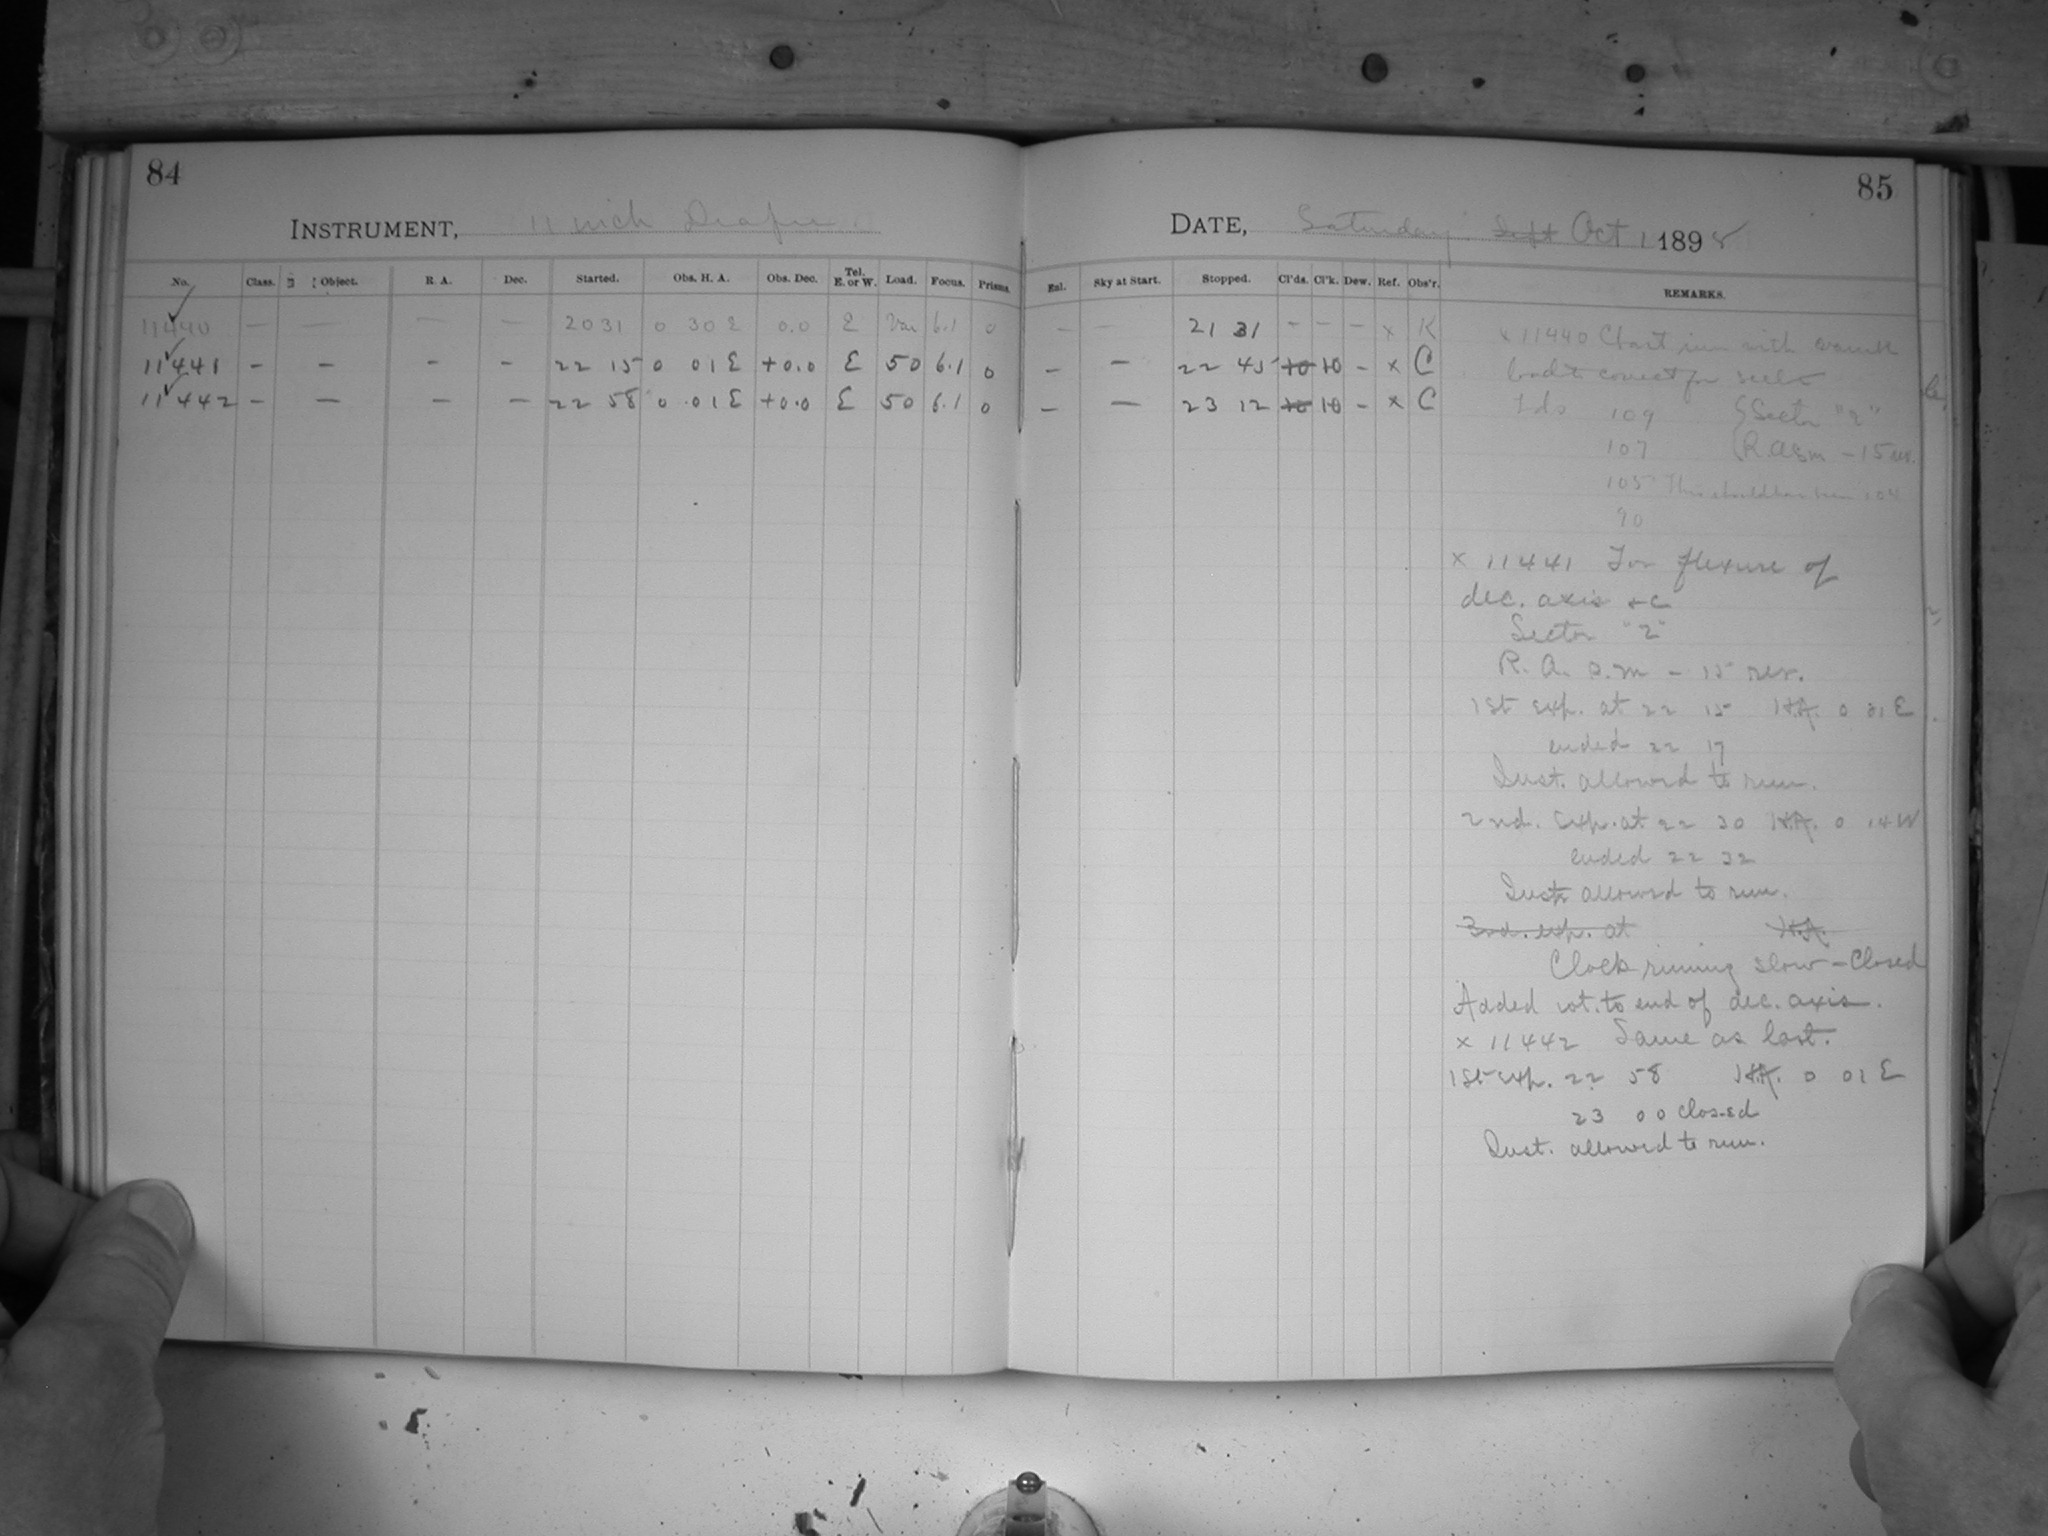 84
85
INSTRUMENT, 11 inch Draper
DATE, Saturday Sept Oct 1 1898
No. Class. Object. R. A. Dec. Started. Obs. H. A. Obs. Dec. Tel. E. or W. Load. Focus. Prisms. Enl. Sky at Start. Stopped. Cl'ds. Cl'k. Dew. Ref. Obs'r. REMARKS.
11440 — — — — 20 31 0 30 E 0.0 E Var 6.1 0 — — 21 31 – – – x K
11441 – – – – 22 15 0 01 E +0.0 E 50 6.1 0 – – 22 45 10 10 – x C
11442 – – – – 22 58 0 01 E +0.0 E 50 6.1 0 – – 23 12 10 10 – x C
x 11440 Chart run with
load to correct for
109 Sector "2"
107 R. A. s.m – 15 rev.
105 This should have been 104
90
x 11441 For flexure of
dec. axis &c
Sector "2"
R. A. s.m – 15 rev.
1st exp. at 22 15 H.A. 0 01 E
ended 22 17
Inst. allowed to run.
2nd. exp. at 22 30 H.A. 0 14 W
ended 22 32
Inst. allowed to run.
3rd. exp. at H.A.
Clock running slow – Closed
Added wt. to end of dec. axis.
x 11442 Same as last.
1st exp. 22 58 H.A. 0 01 E
23 00 closed
Inst. allowed to run.